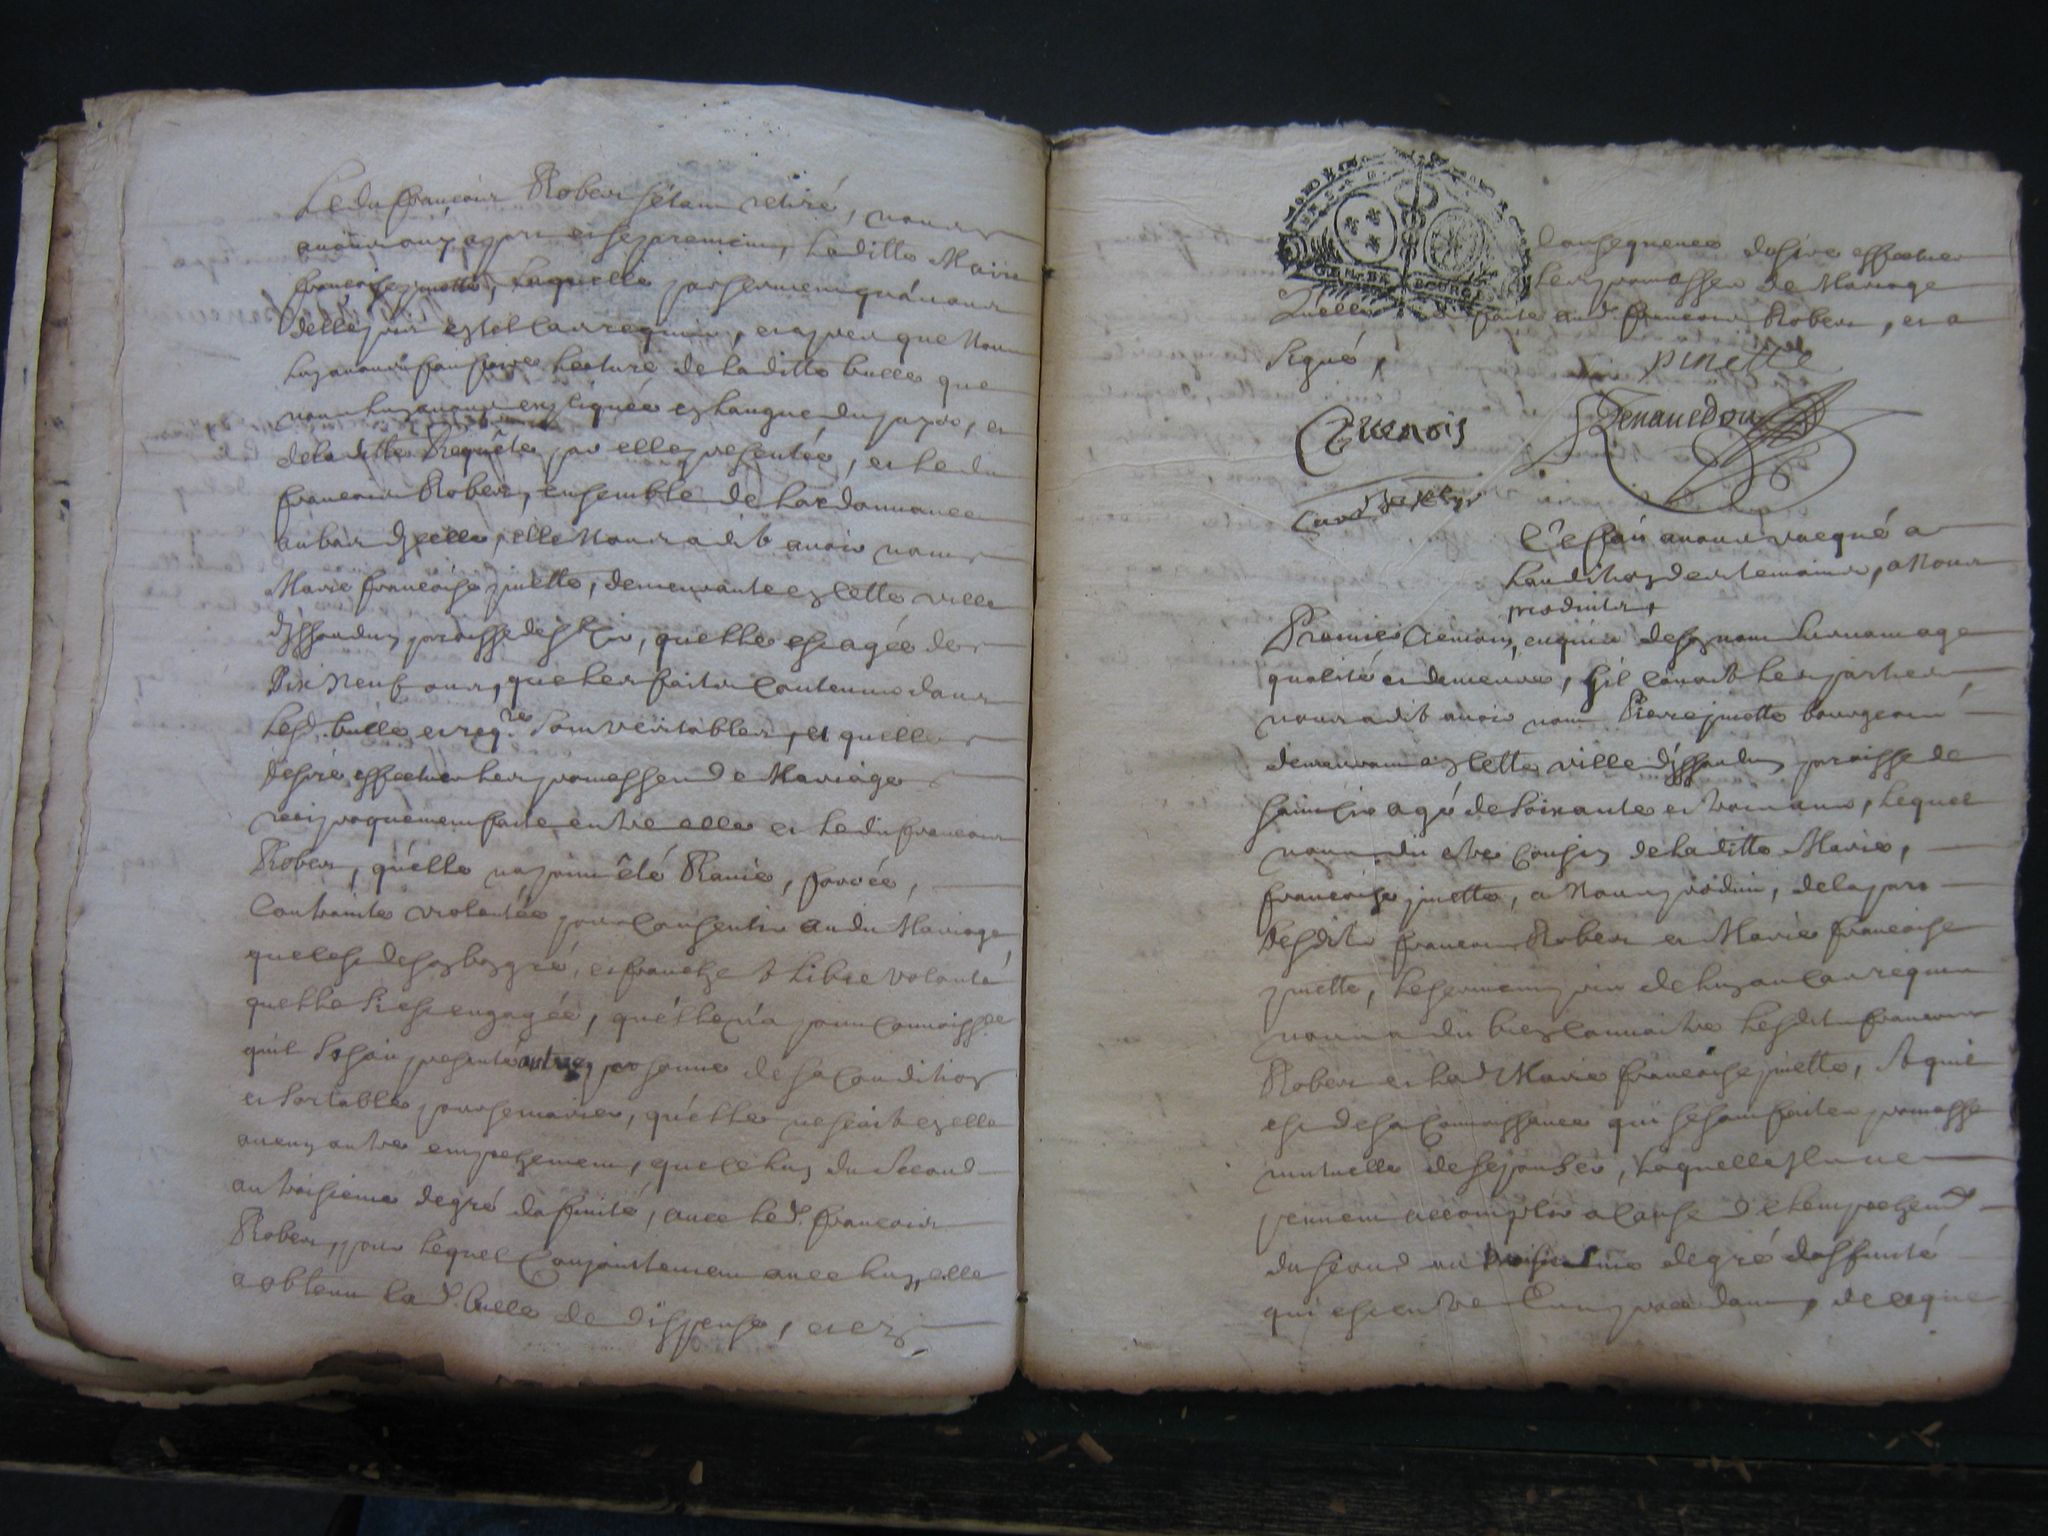 Ledit françois Robert sétant retiré, nous
avons ouy apres et sepremment, laditte Marie
françoise pinette, laquelle par serment quavons
delle pris en tel cas requis, et apres que Nous
luy avons fait faire lecture de laditte bulle que
nous luy avons expliquée en langue du pays, et
de laditte Requête par elle presentée, et ledit
françois Robert, ensemble de lordonnance
au bas dycelle, elle Nous a dit avoir nom
Marie françoise pinette, demeurante en cette ville
dyssoudun paroisse de st Cir, quelle est agée de
Dix Neuf ans, que les faits contenus dans
lesd. bulle et reqte sont veritables, et quelle
desire effectuer les promesses de Mariage
reciproquement faite entre elle et ledit françois
Robert, quélle na point êté Ravie, forcée,
Contrainte violentée pour Consentir audit Mariage
que cest de son bon gré, et franche & libre volonté
quelle si est engagée, quélle n'a point connoissce
quil se soit presenté autre personne de sa Condition
et sortable pour se marier, quélle ne scait en elle
aucun autre empeschement, que celuy du second
au troisieme degré dafinité, avec led. françois
Robert, pour lequel Conjointement avec luy, elle
a obtenu lad. bulle de dispense, et en
Consequence desire effectuer
les promesses de Mariage
GEN. DE BOURGES
Quelle a faite aud. françois Robert, et a
signé,
pinette
Guenois
L'Effait avons vacqué a
laudition des temoins, a Nous
produits,
Premier temoin, enquis de son nom surnom age
qualité et demeure, s'il Connoit les parties,
nous a dit avoir nom Pierre pinette bourgeois
demeurant en cette ville dissoudun paroisse de
saint Cir agé de soixante et trois ans, lequel
nous a dit estre Cousin de laditte Marie,
françoise pinette, a Nous produit, de la part
desdits françois Robert et Marie françoise
pinette, le serment pris de luy au Cas requis
nous a dit bien Connoitre lesdits françois
Robert et lad. Marie françoise pinette, & quil
est de sa Connoissance qui se sont faite promesse
mutuelle de sépouser, laquelle ils ne
peuvent accomplir a Cause de lempeschemt
du second au troisiesme degré daffinité
qui est entre Eux, procedant, de ce que